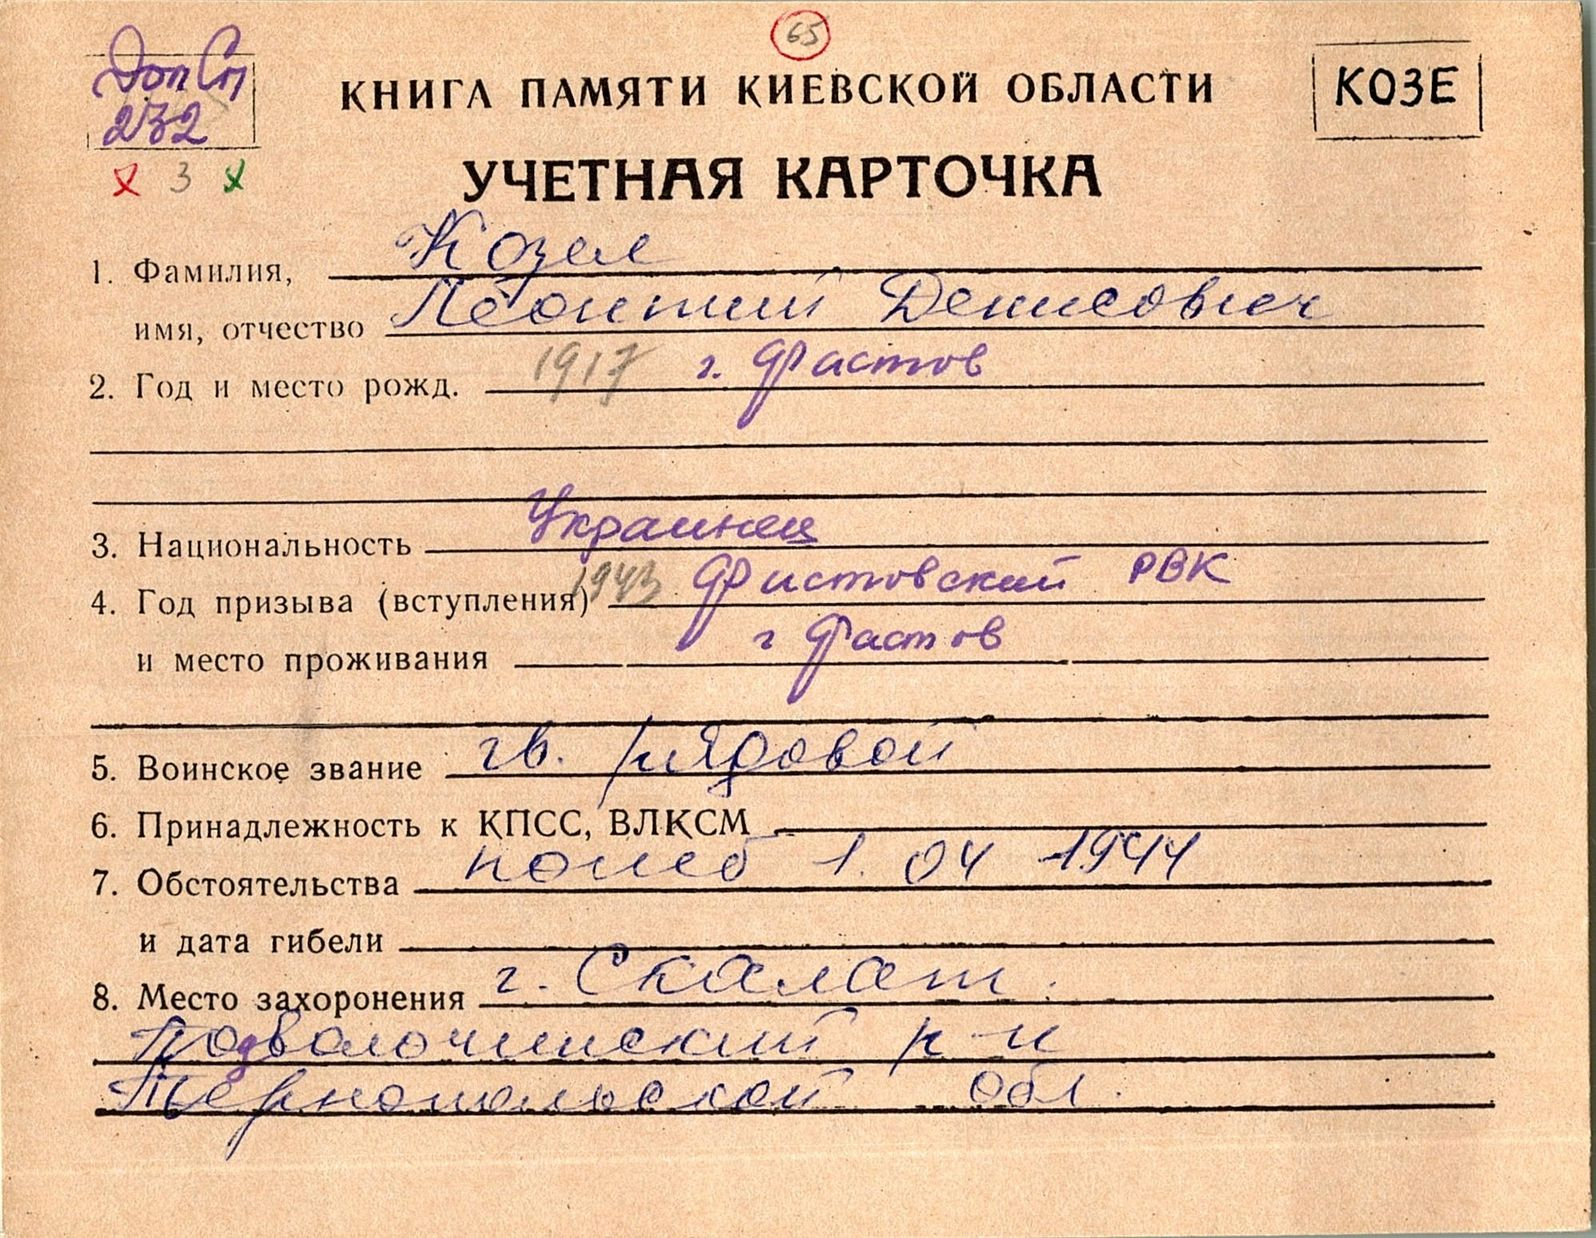 65
Доп Сп
232
3
КНИГА ПАМЯТИ КИЕВСКОЙ ОБЛАСТИ
КОЗЕ
УЧЕТНАЯ КАРТОЧКА
1. Фамилия, Козел
имя, отчество Леонтий Денисович
2. Год и место рожд. 1917 г. Фастов
3. Национальность Украинец
4. Год призыва (вступления) 1943 Фастовский РВК
и место проживания г Фастов
5. Воинское звание гв. рядовой
6. Принадлежность к КПСС, ВЛКСМ
7. Обстоятельства погиб 1. 04 1944
и дата гибели
8. Место захоронения г. Скалат.
Подволочиский р-н
Тернопольской обл.